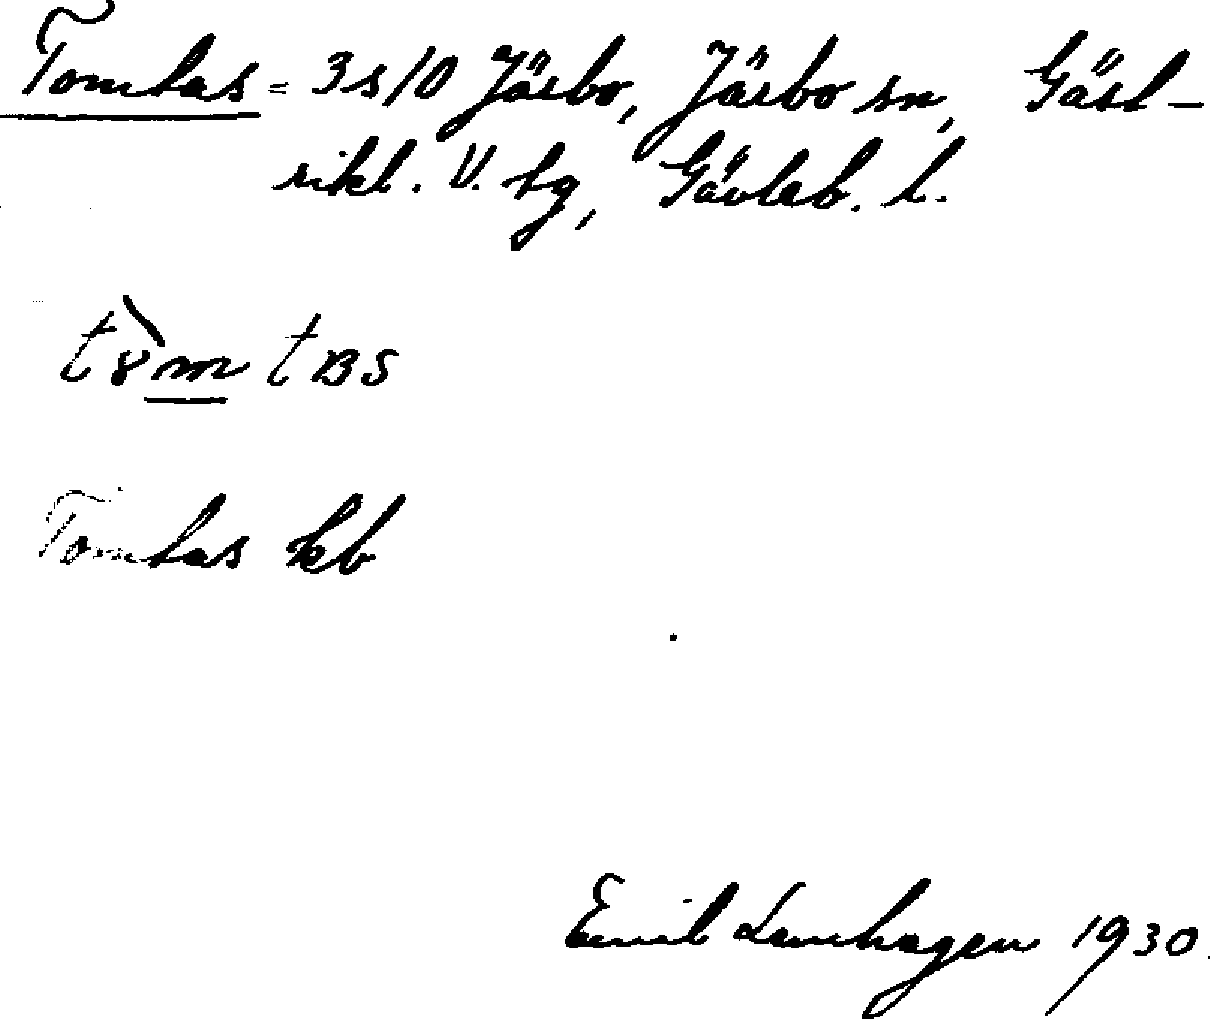 Tomtas = 3s/0 Järbo, Järbo sn, Gäst-
rikl. V. tg, Gävleb. l.
Tomtas kb
Emil Lanhagen 1930.